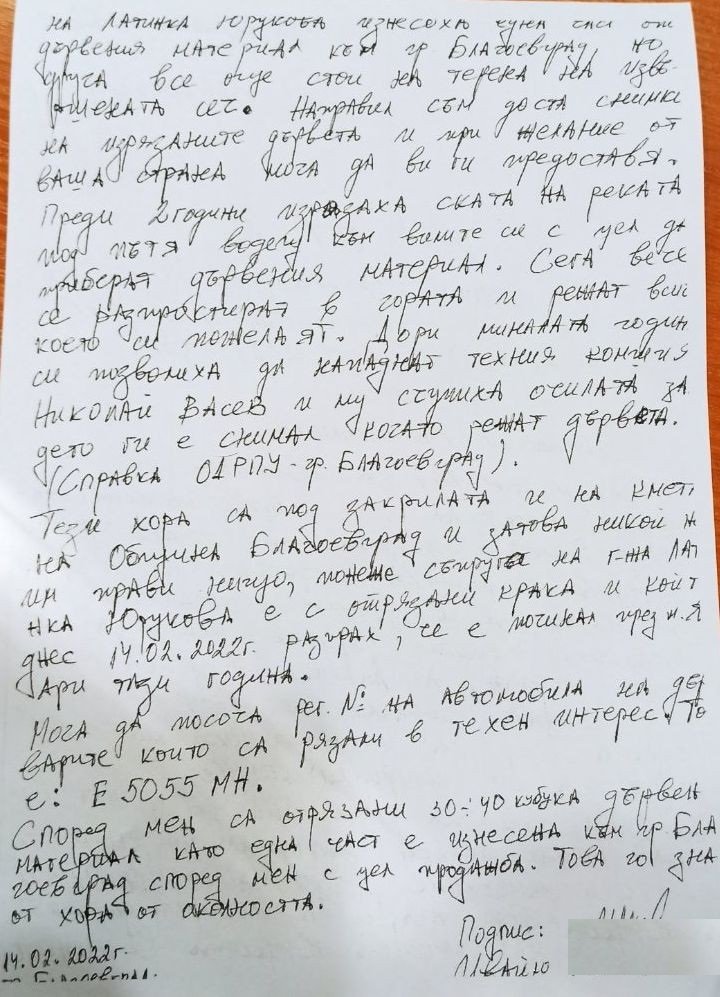 на Латинка Юрукова изнесоха една част от
дървения материал към гр Благоевград, но
друга все още стои на терена на извъ-
ршената сеч. Направил съм доста снимки
на изрязаните дървета и при желание от
ваша страна мога да ви ги предоставя.
Преди 2 години изрязаха ската на реката
под пътя водещ към вилите си с цел да
приберат дървения материал. Сега вече
се разпростират в гората и режат
което си пожелаят. Дори миналата годин
си позволиха да нападнат техния комшия
Николай Васев и му счупиха очилата за
дето ги е снимал когато режат дървета.
(Справка 01РПУ - гр. Благоевград).
Тези хора са под закрилата и на кмет
на Община Благоевград и затова никой н
им прави нищо, понеже съпруга на г-жа Лат
нка Юрукова е с отрязани крака и кой т
днес 14.02.2022г. разбрах, че е починал през м. Я
уари тази година.
Мога да посоча рег. № на автомобила на дър
варите които са рязали в техен интерес. То
е: Е 5055 МН.
Според мен са отрязани 30÷40 кубика дървен
материал като една част е изнесена към гр. Бла
гоевград според мен с цел продажба. Това го зна
от хора от околността.
Подпис:
14.02.2022г.
Ивайло